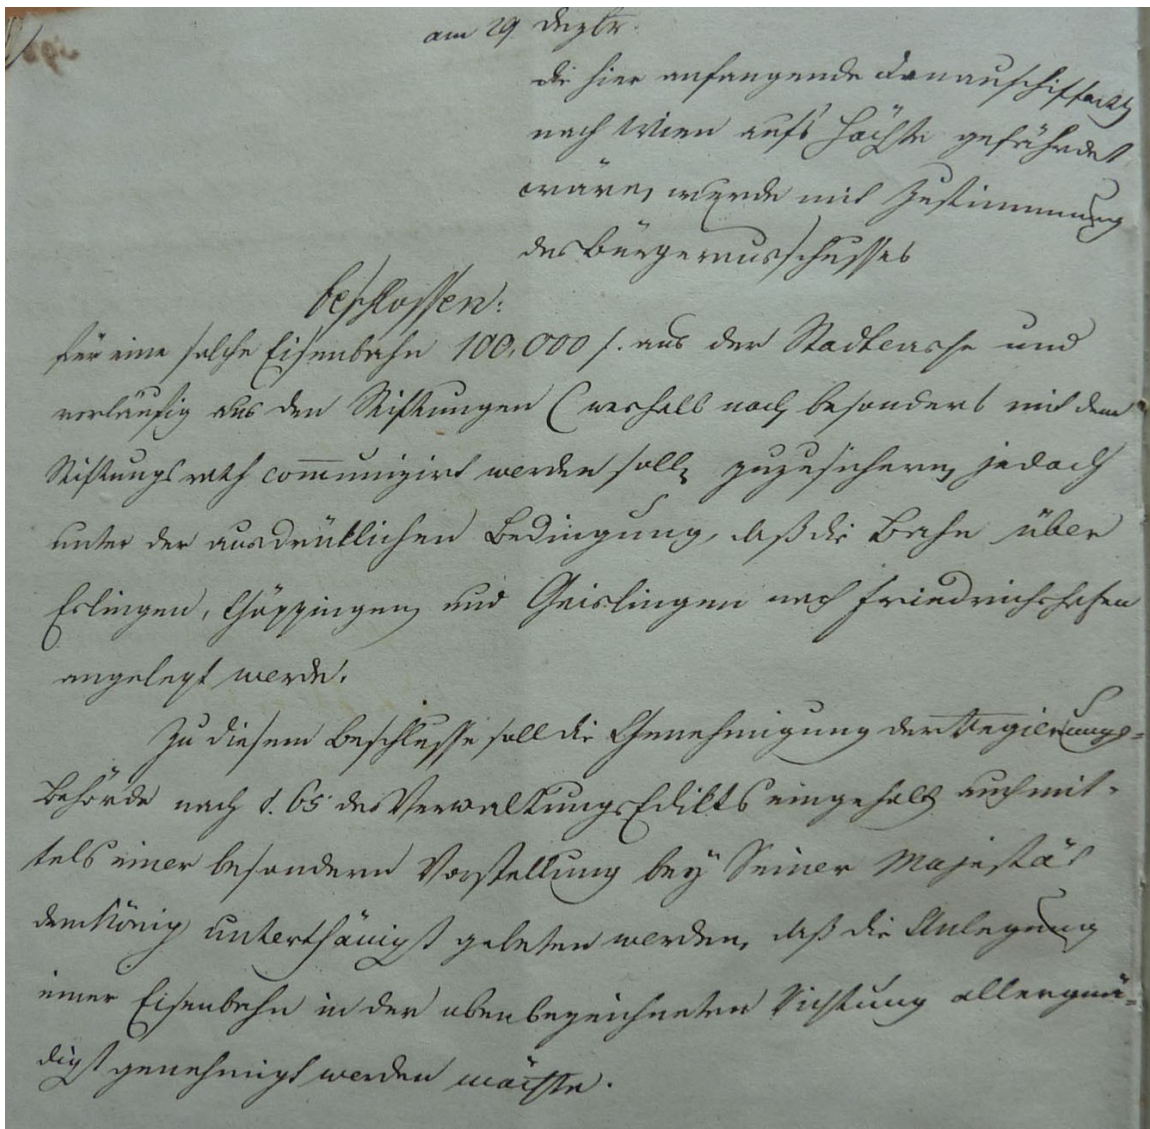 am 29 Dezbr.
die hier anfangende Donauschiffarth
nach Wien aufs Höchste gefährdet
wäre, wurde mit Zustimmung
des Bürgerausschusses
beschlossen:
für eine solche Eisenbahn 100,000 f. aus der Stadtcasse und
vorläufig aus den Stiftungen (weshalb noch besonders mit dem
Stiftungsrath communizirt werden soll, zuzusichern, jedoch
unter der ausdrüklichen Bedingung, daß die Bahn über
Eslingen, Göppingen, und Geislingen nach Friedrichshafen
angelegt werde.
Zu diesem Beschlusse soll die Genehmigung der Regierungs-
Behörde nach §. 65 des VerwaltungsEdikts eingeholt, auch mit-
tels einer besondern Vorstellung bey Seiner Majestät
dem König unterthänigst gebeten werden, daß die Anlegung
einer Eisenbahn in der obenbezeichneten Richtung allergnä-
digst genehmigt werden möchte.